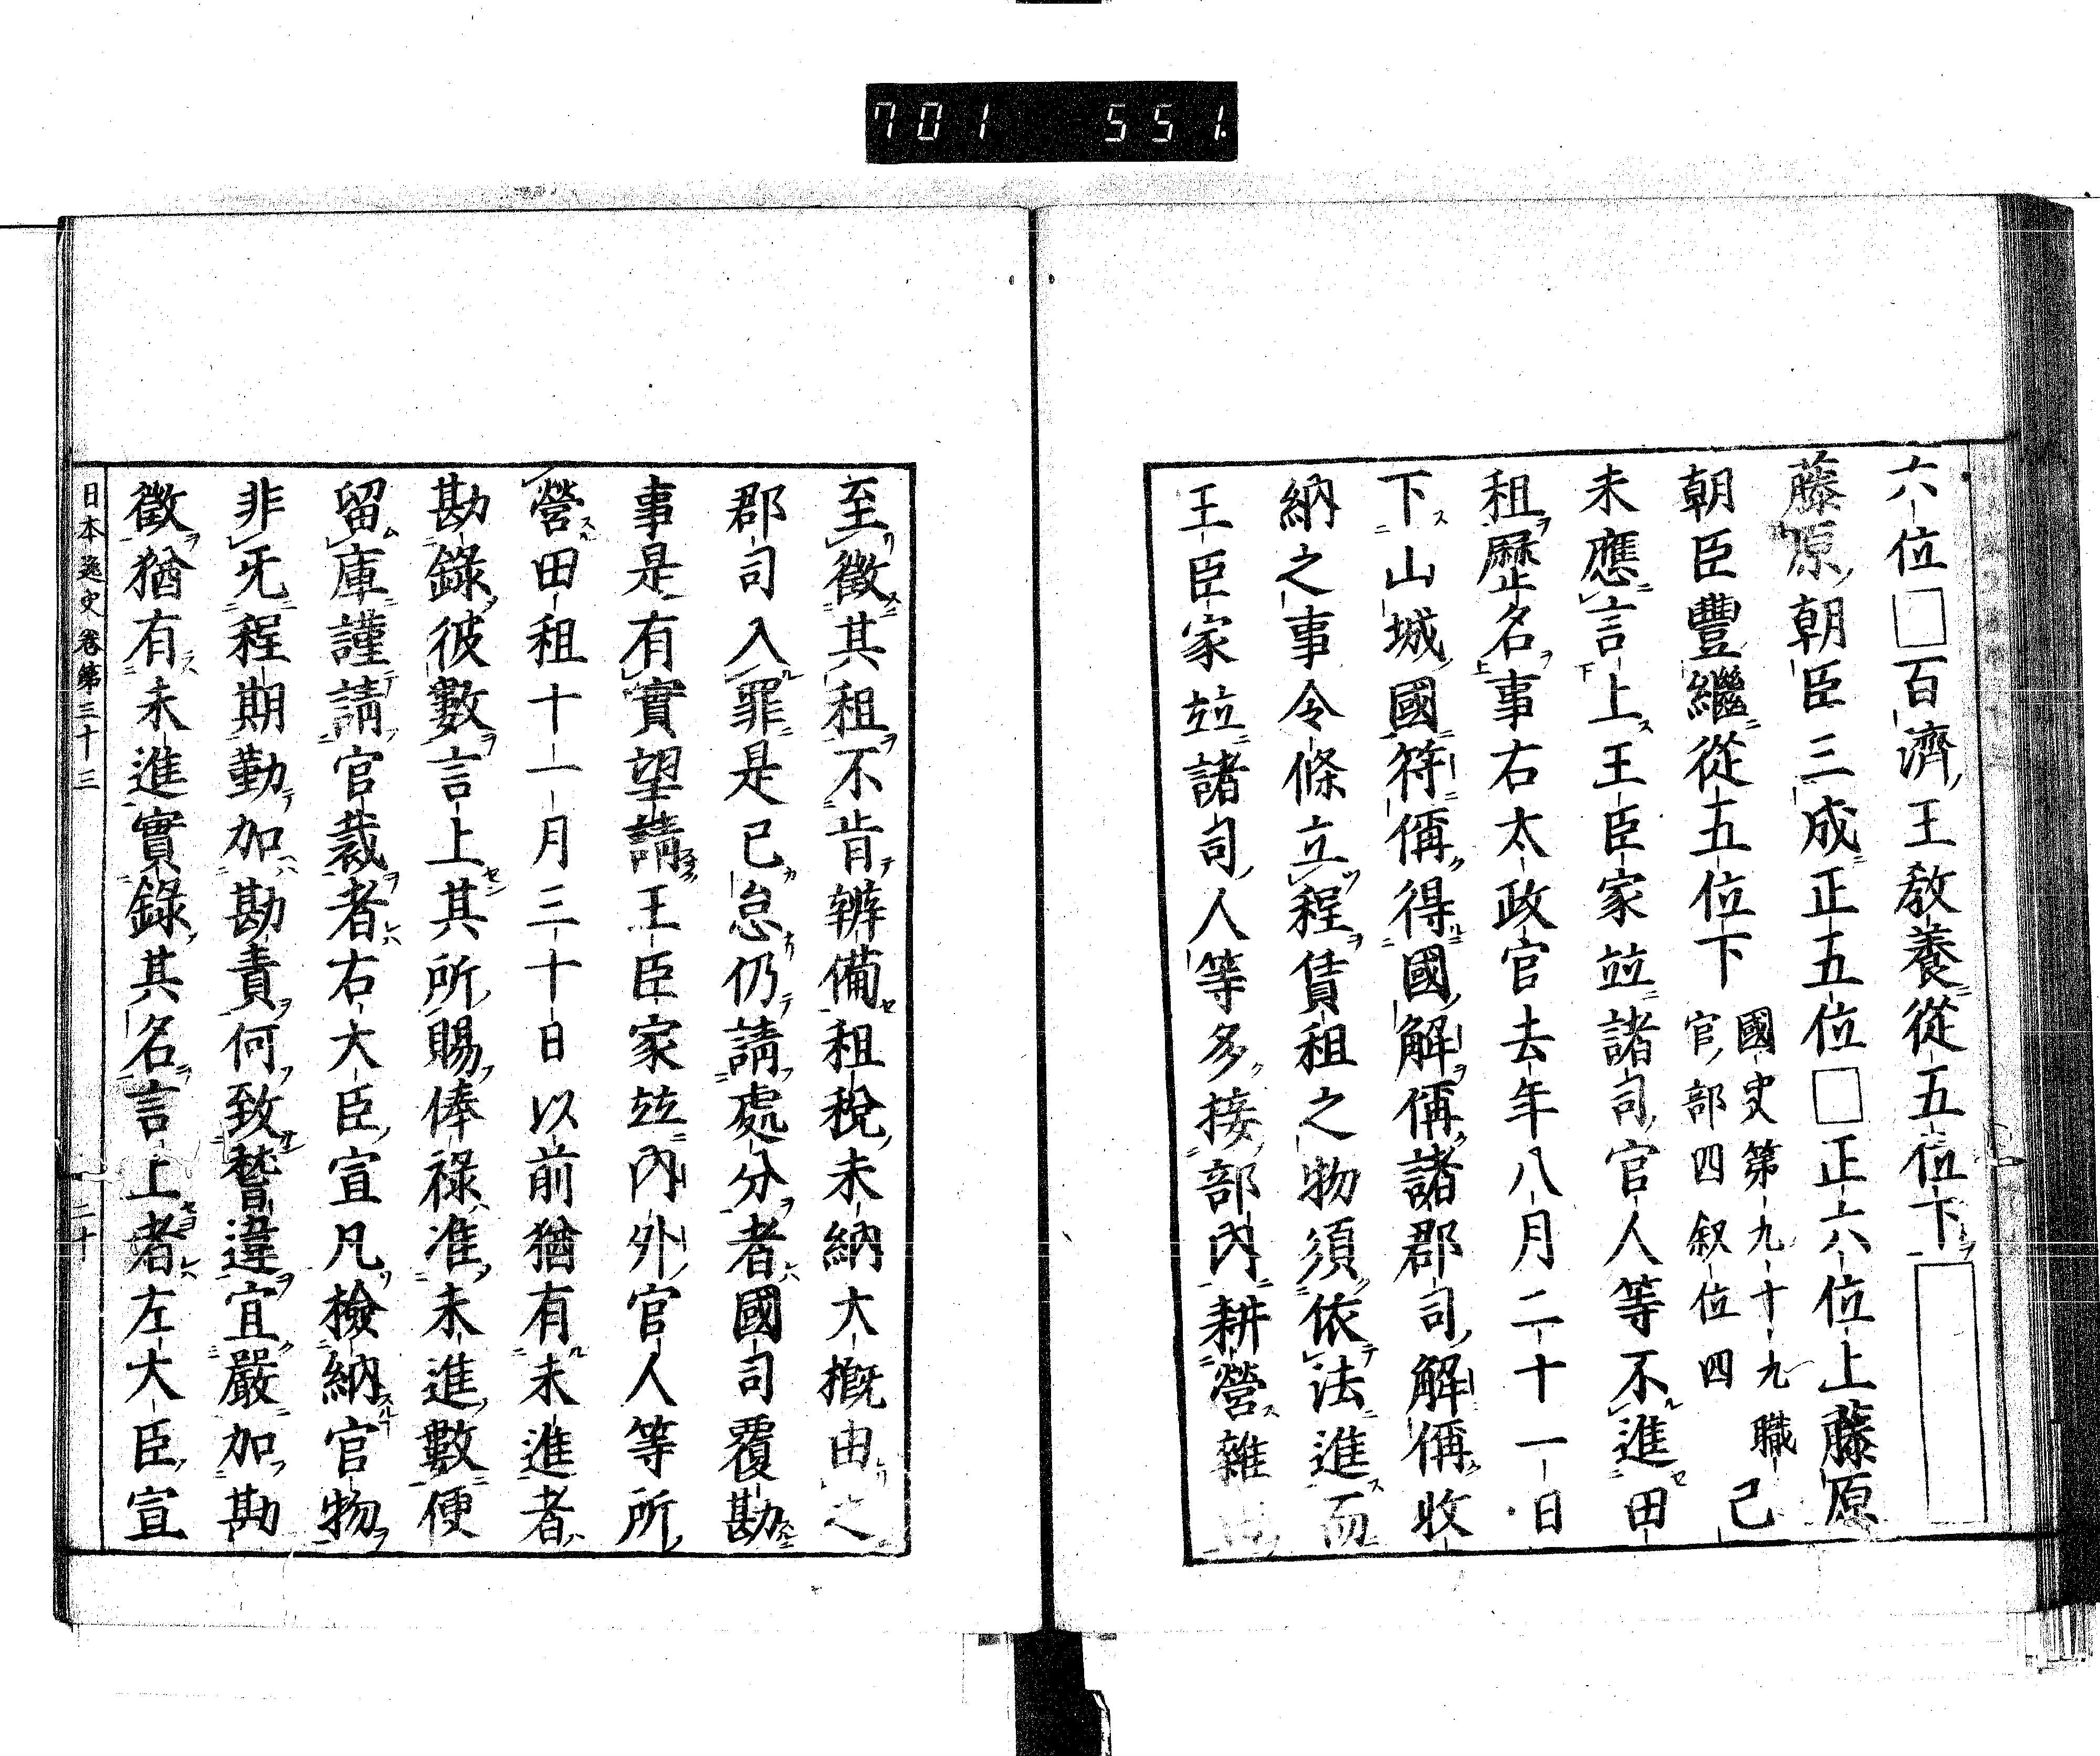 701 551
六位□百濟王敎養從五位下
藤原朝臣三成正五位□正六位上藤原
朝臣豐繼從五位下 國史第九十九職官部四叙位四 己
未應言上王臣家竝諸司官人等不進田
租歷名事右太政官去年八月二十一日
下山城國符偁得國解偁諸郡司解偁收
納之事令條立程賃租之物須依法進而
王臣家竝諸司人等多接部內耕營雜
至徵其租不肯辨備租稅未納大槪由之
郡司入罪是已怠仍請處分者國司覆勘
事是有實望請王臣家竝內外官人等所
營田租十一月三十日以前猶有未進者
勘錄彼數言上其所賜俸祿准未進數便
留庫謹請官裁者右大臣宣凡檢納官物
非旡程期勤加勘責何致暬違宜嚴加勘
徵猶有未進實錄其名言上者左大臣宣
日本逸史卷第三十三 二十